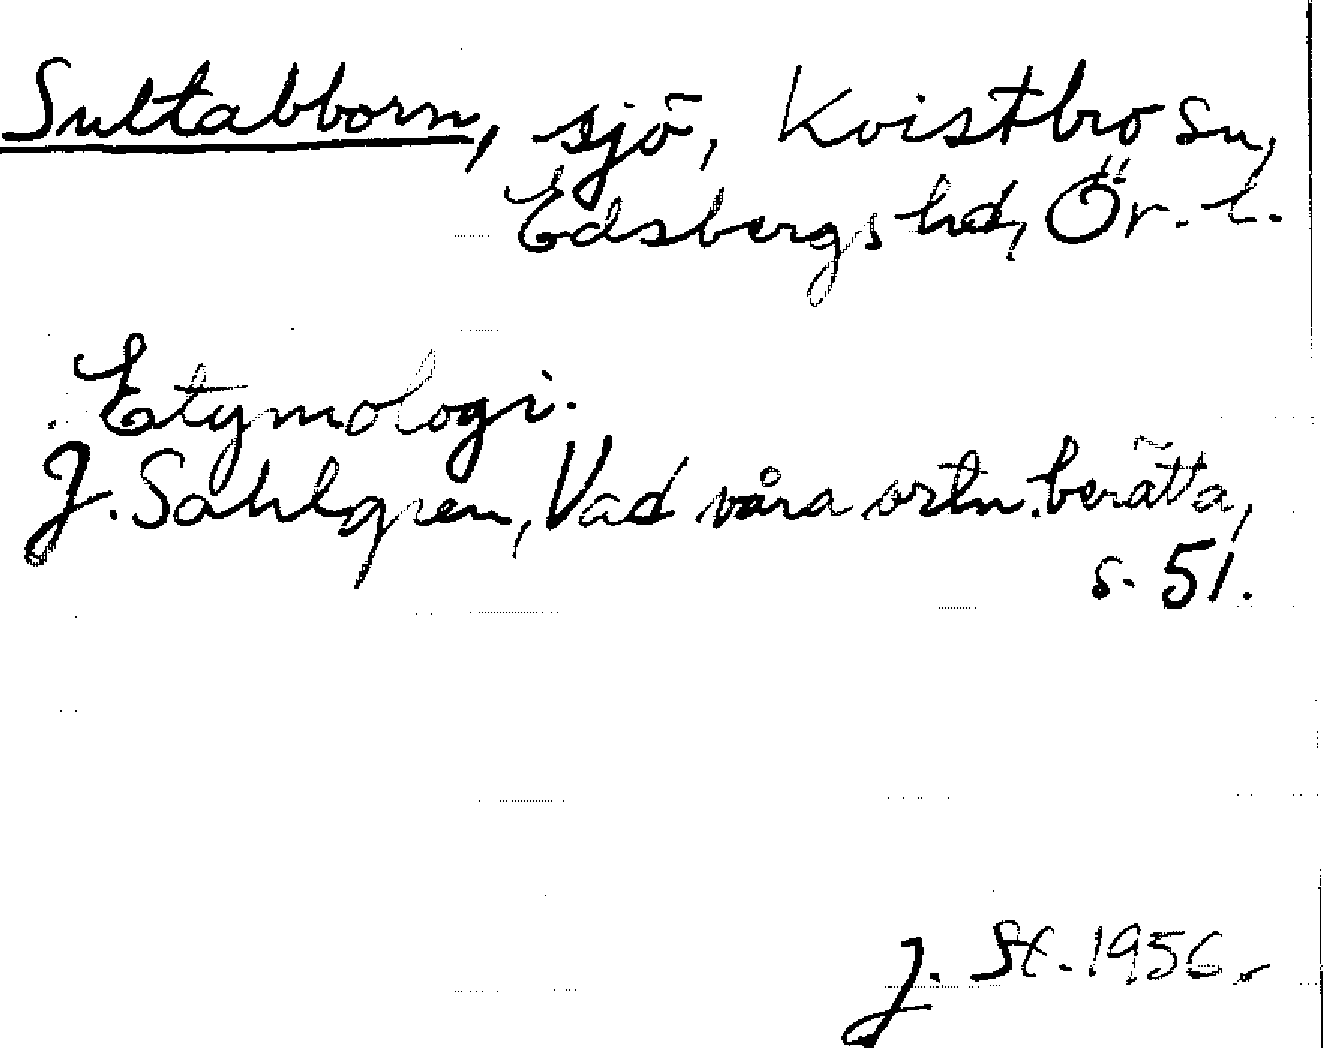 Sultabborn, sjö, Kvistbro sn,
Edsbergs hd, Ör. l.
Etymologi.
J. Sahlgren, Vad våra ortn. berätta,
s. 51.
J. St. 1956.